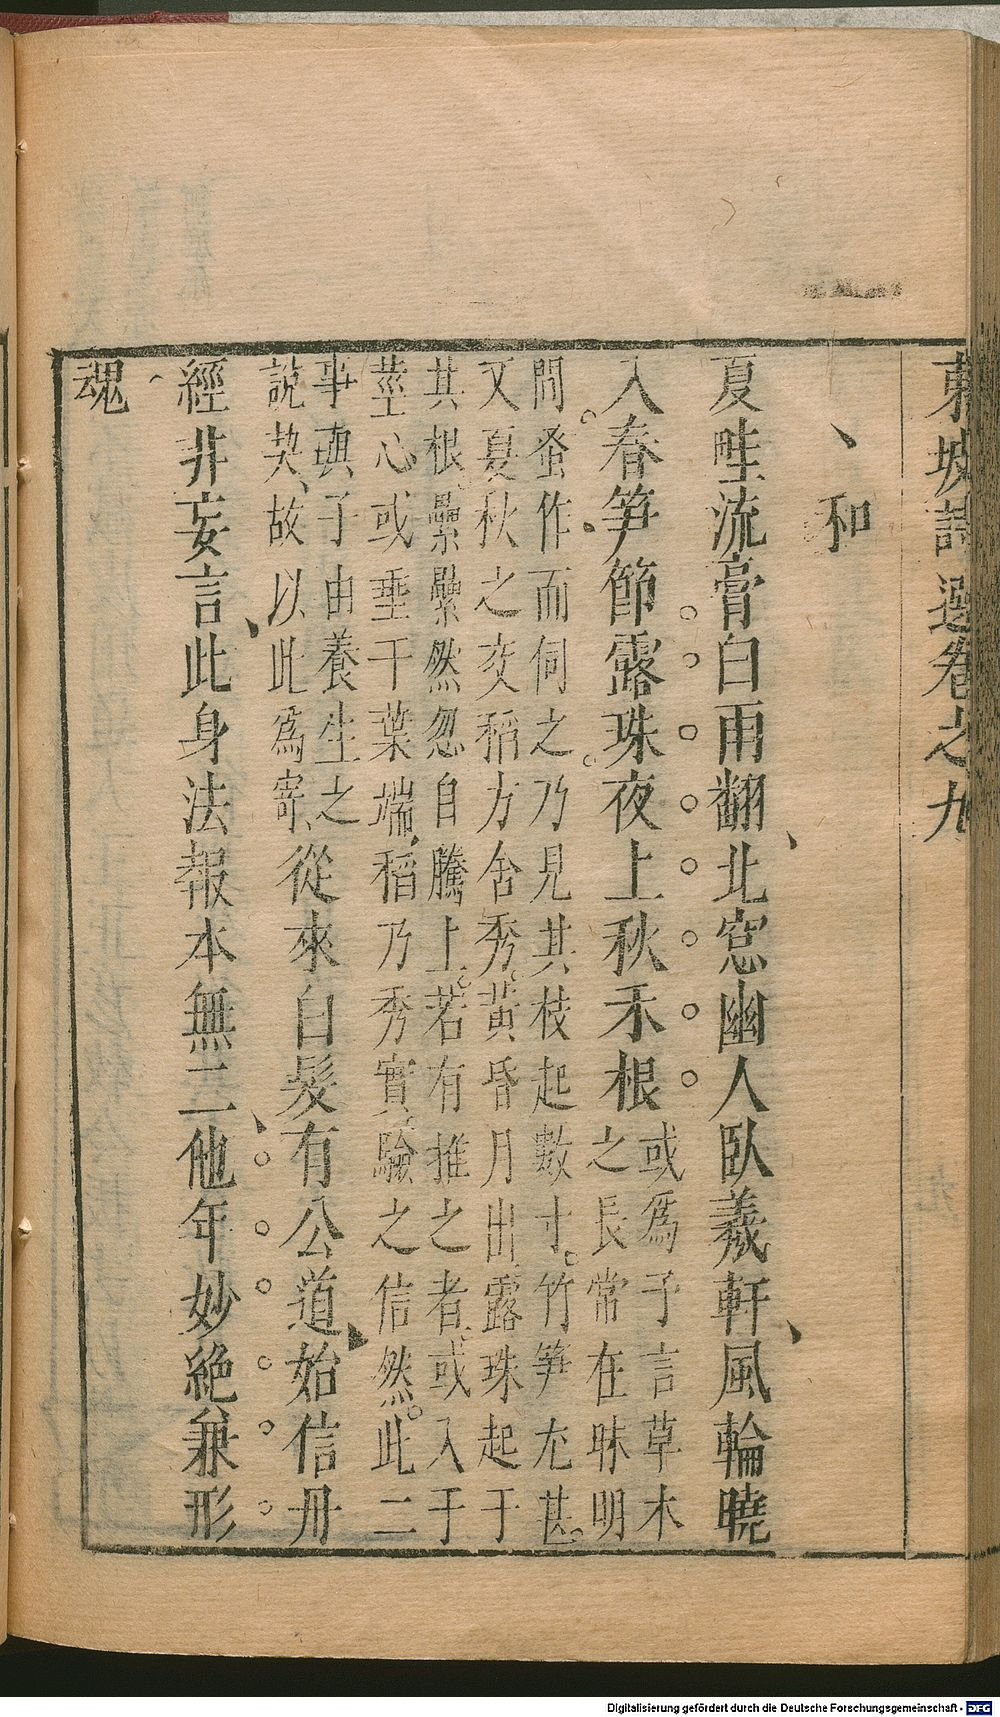 東坡詩選卷之九
和
夏畦流膏白雨翻北窓幽人臥羲軒風輪曉
入春笋節露珠夜上秋禾根
或爲予言草木
之長常在昧明
間蚤作而伺之乃見其枝起數寸竹笋尤甚
又夏秋之交稻方含秀黃昏月出露珠起于
其根纍纍然忽自騰上若有推之者或入于
莖心或垂于葉端稻乃秀實驗之信然此二
事與子由養生之
說契故以此爲寄
從來白髮有公道始信丹
經非妄言此身法報本無二他年妙絶兼形
魂
Digitalisierung gefördert durch die Deutsche Forschungsgemeinschaft - DFG